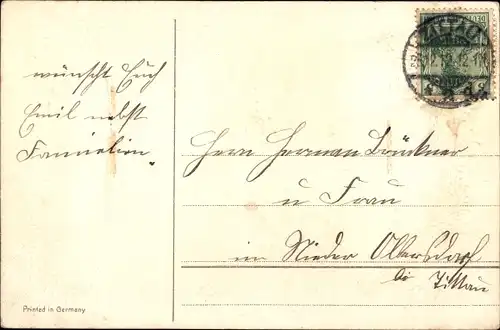 wünscht Euch
Emil nebst
Familien
Herrn Herman Brückner
u Frau
in Nieder Olbersdorf
bei Zittau
Printed in Germany